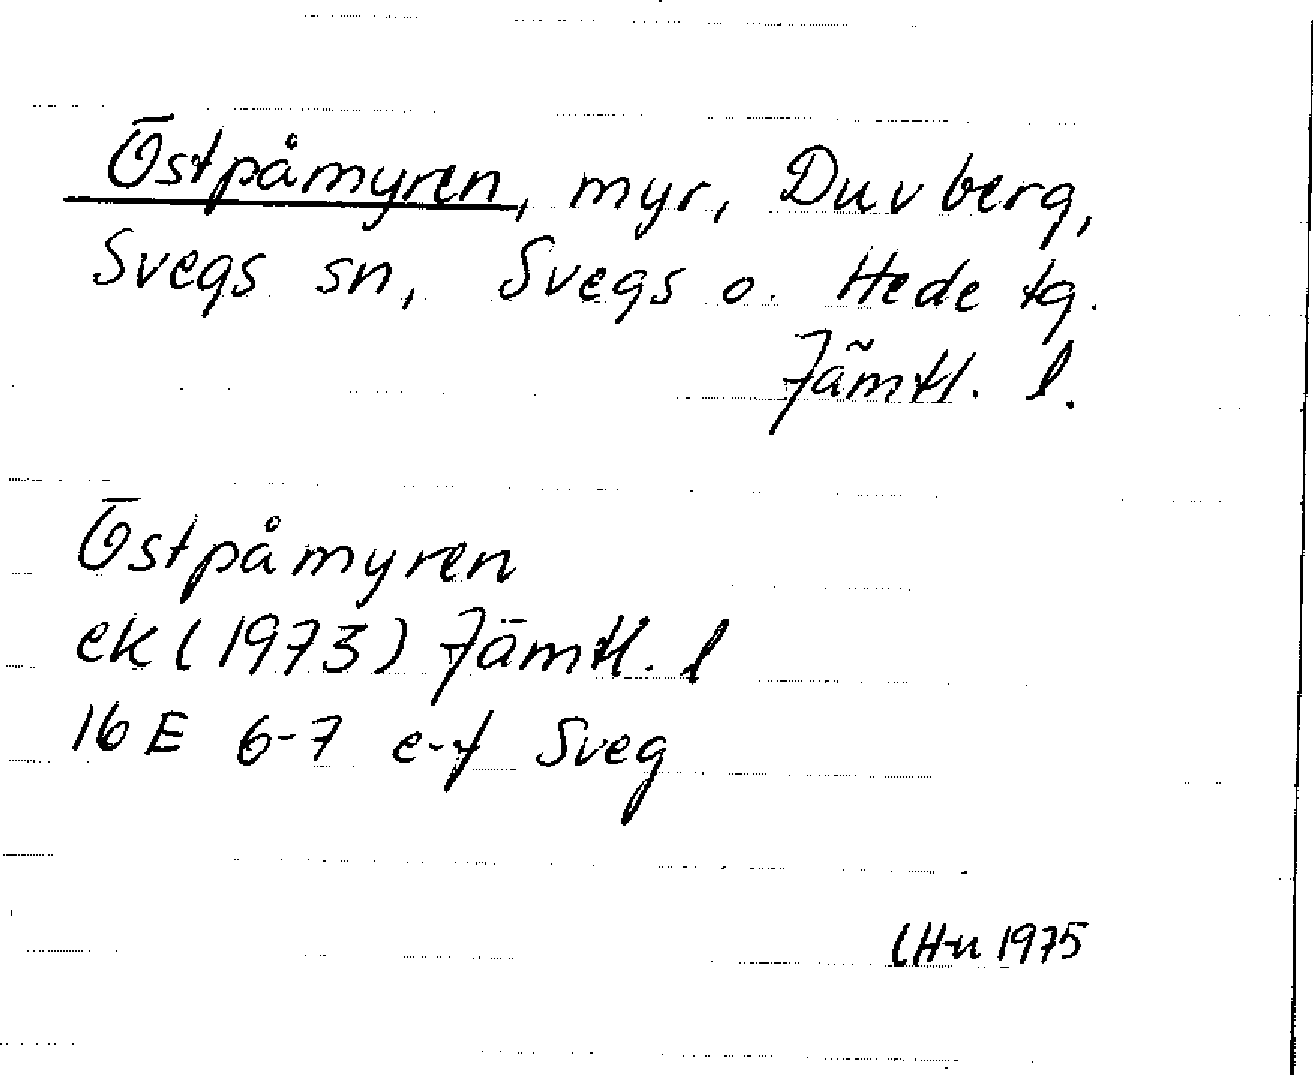 Östpåmyren, myr, Duvberg,
Svegs sn, Svegs o. Hede tg.
Jämtl. l.
Östpåmyren
ek (1973) Jämtl. l
16 E 6-7 e-f Sveg
LH-n 1975